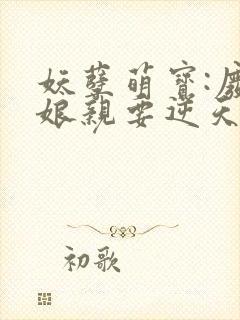 妖孽萌宝:廢
娘親要逆天
初歌